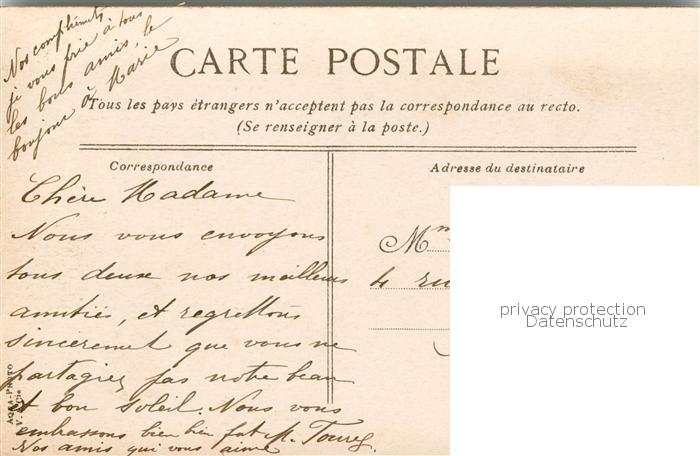 Nos compliments
je vous prie à tous
les bons amis, le
bonjour à Marie
CARTE POSTALE
Tous les pays étrangers n'acceptent pas la correspondance au recto.
(Se renseigner à la poste.)
Correspondance
Chère Madame
Nous vous envoyons
tous deux nos meilleurs
amitiés, et regrettons
sincerement que vous ne
partagiez pas notre beau
et bon soleil. Nous vous
embrassons bien bien fort M. Tourey.
Nos amis qui vous aime
Adresse du destinataire
Mm
4 ru
privacy protection
Datenschutz
AQUA-PHOTO